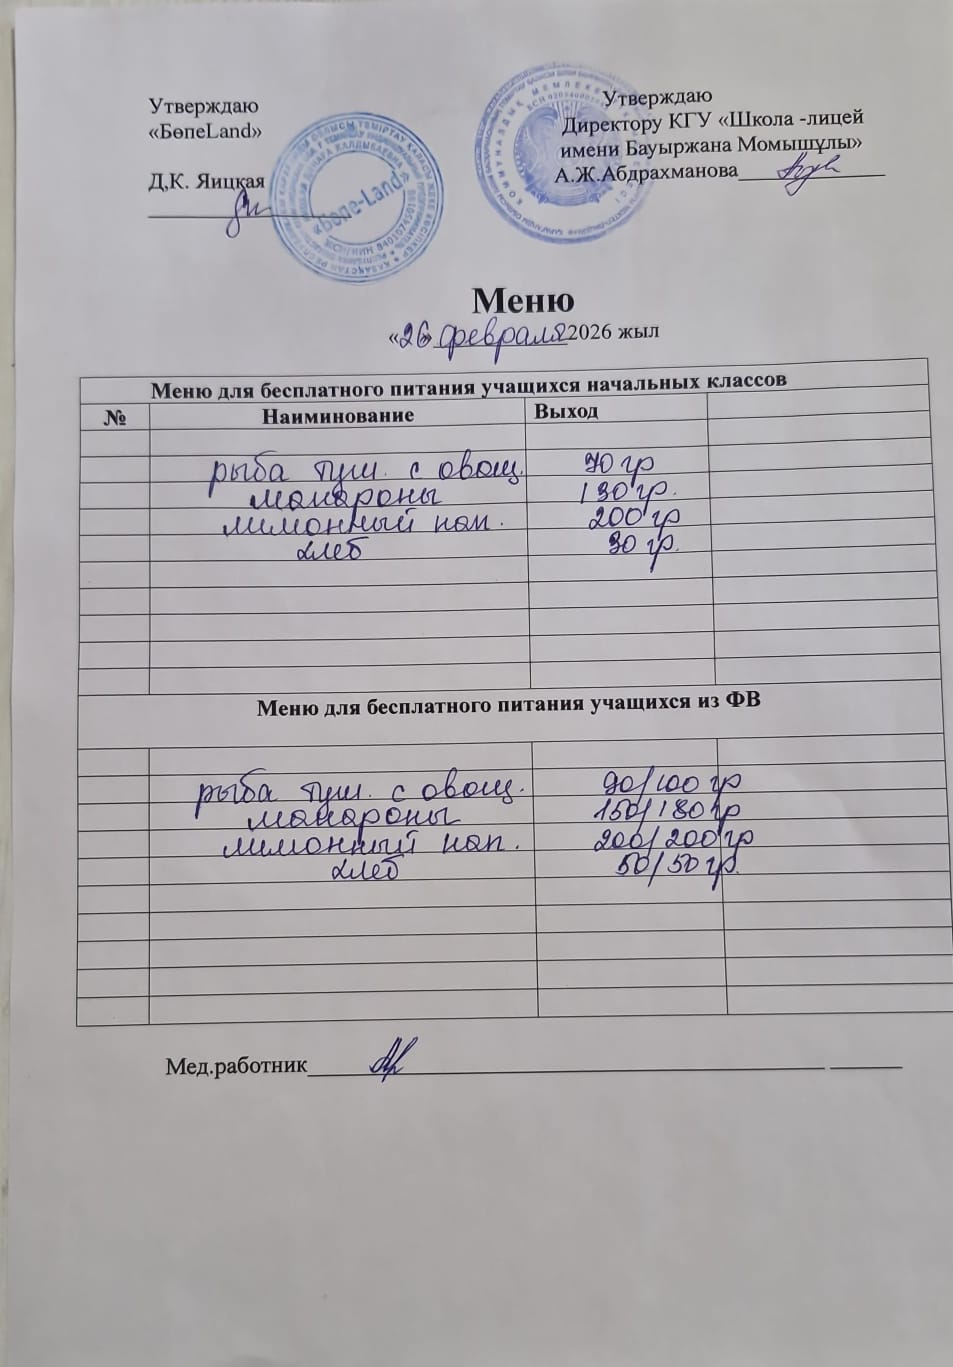 Утверждаю
«БөпеLand»
Д,К. Яицкая
Утверждаю
Директору КГУ «Школа -лицей
имени Бауыржана Момышұлы»
А.Ж.Абдрахманова
«bөпе-Land»
Меню
«26» февраля 2026 жыл
Меню для бесплатного питания учащихся начальных классов
№ Наиминование Выход
рыба туш. с овощ. 70 гр
макароны 130 гр.
лимонный нап. 200 гр
хлеб 30 гр.
Меню для бесплатного питания учащихся из ФВ
рыба туш. с овощ. 90/100 гр
макароны 150/180 гр
лимонный нап. 200/200 гр
хлеб 50/50 гр.
Мед.работник